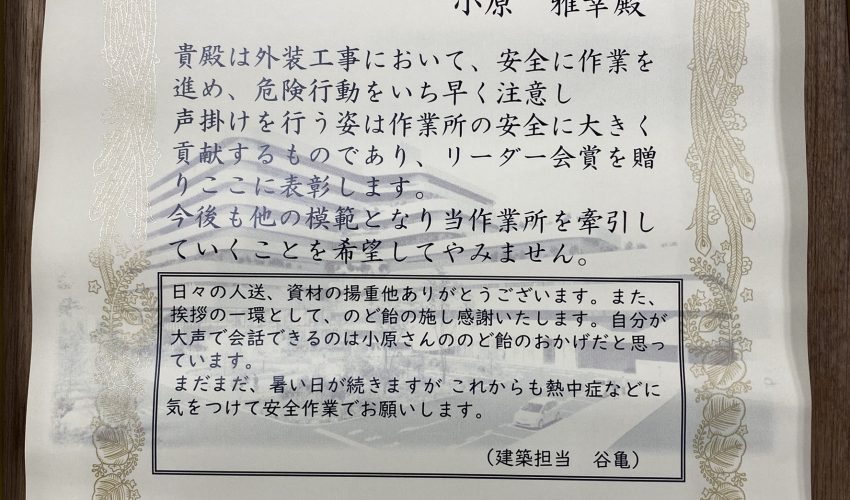 小原　雅幸殿
貴殿は外装工事において、安全に作業を
進め、危険行動をいち早く注意し
声掛けを行う姿は作業所の安全に大きく
貢献するものであり、リーダー会賞を贈
りここに表彰します。
今後も他の模範となり当作業所を牽引し
ていくことを希望してやみません。
日々の人送、資材の揚重他ありがとうございます。また、
挨拶の一環として、のど飴の施し感謝いたします。自分が
大声で会話できるのは小原さんののど飴のおかげだと思っ
ています。
まだまだ、暑い日が続きますが これからも熱中症などに
気をつけて安全作業でお願いします。
（建築担当　谷亀）